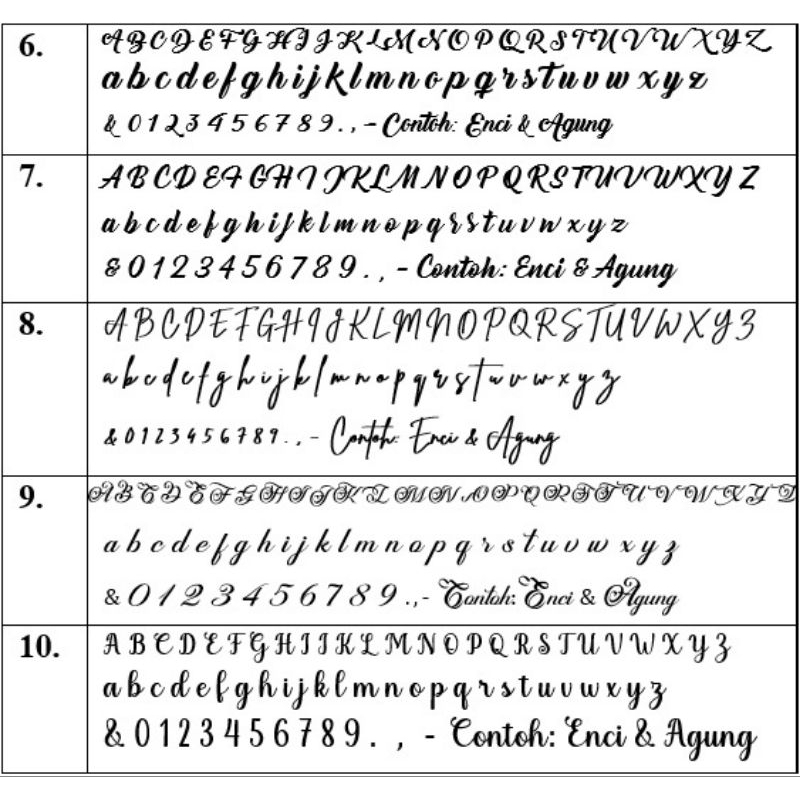 6.
A B C D E F G H I J K L M N O P Q R S T U V W X Y Z
a b c d e f g h i j k l m n o p q r s t u v w x y z
& 0 1 2 3 4 5 6 7 8 9 . , - Contoh: Enci & Agung
7.
A B C D E F G H I J K L M N O P Q R S T U V W X Y Z
a b c d e f g h i j k l m n o p q r s t u v w x y z
& 0 1 2 3 4 5 6 7 8 9 . , - Contoh: Enci & Agung
8.
A B C D E F G H I J K L M N O P Q R S T U V W X Y Z
a b c d e f g h i j k l m n o p q r s t u v w x y z
& 0 1 2 3 4 5 6 7 8 9 . , - Contoh: Enci & Agung
9.
A B C D E F G H I J K L M N O P Q R S T U V W X Y Z
a b c d e f g h i j k l m n o p q r s t u v w x y z
& 0 1 2 3 4 5 6 7 8 9 . , - Contoh: Enci & Agung
10.
A B C D E F G H I J K L M N O P Q R S T U V W X Y Z
a b c d e f g h i j k l m n o p q r s t u v w x y z
& 0 1 2 3 4 5 6 7 8 9 . , - Contoh: Enci & Agung